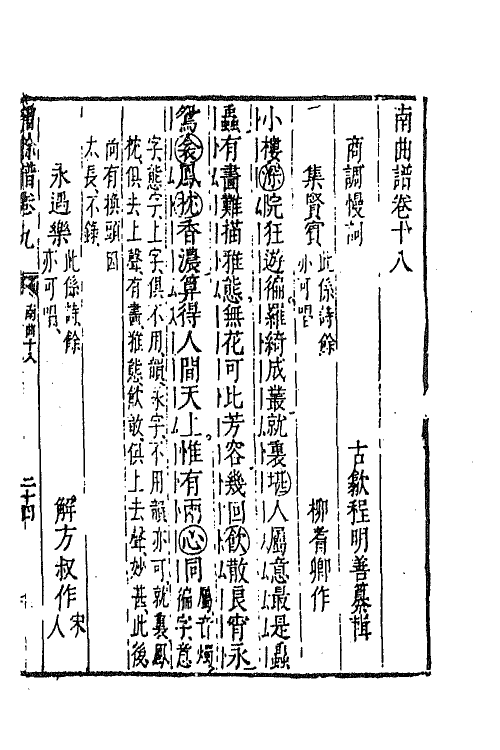 南曲譜卷十八
商調慢詞 古歙程明善纂輯
集賢賓 此係詩餘亦可唱 柳耆卿作
小樓深院狂遊徧羅綺成叢就裏堪人屬意最是蟲
蟲有畫難描雅態無花可比芳容幾回飲散良宵永
鴛衾鳳枕香濃算得人間天上惟有兩心同 屬音燭徧字意
字態字上字俱不用韻永字不用韻亦可就裏鳳
枕俱去上聲有畫雅態飲散俱上去聲妙甚此後
尚有換頭因
太長不錄
永遇樂 此係詩餘亦可唱 解方叔作 宋人
餘譜卷九 南曲十八 二十四